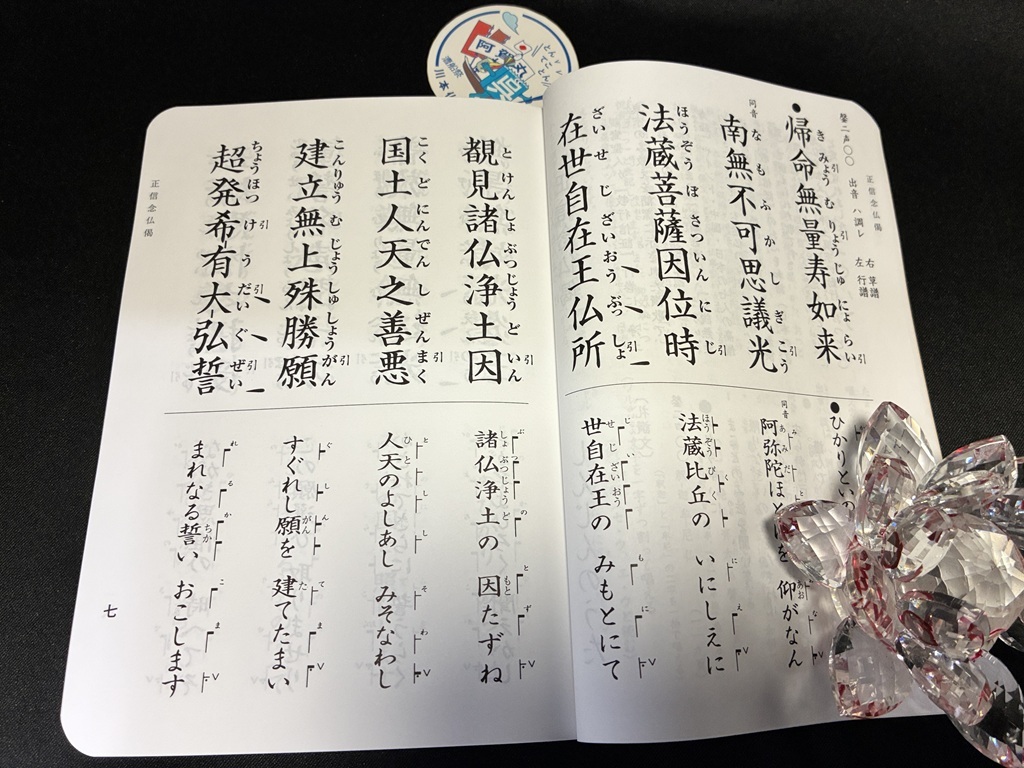 正信念仏偈
磬二声〇〇 出音 ハ調レ 右 草譜 左 行譜
●帰命無量寿如来
同音 南無不可思議光
法蔵菩薩因位時
在世自在王仏所
覩見諸仏浄土因
国土人天之善悪
建立無上殊勝願
超発希有大弘誓
●ひかりといの
同音 阿弥陀ほと を 仰がなん
法蔵比丘の いにしえに
世自在王の みもとにて
諸仏浄土の 因たずね
人天のよしあし みそなわし
すぐれし願を 建てたまい
まれなる誓い おこします
正信念仏偈
七
阿賀丸
川本
とんとん